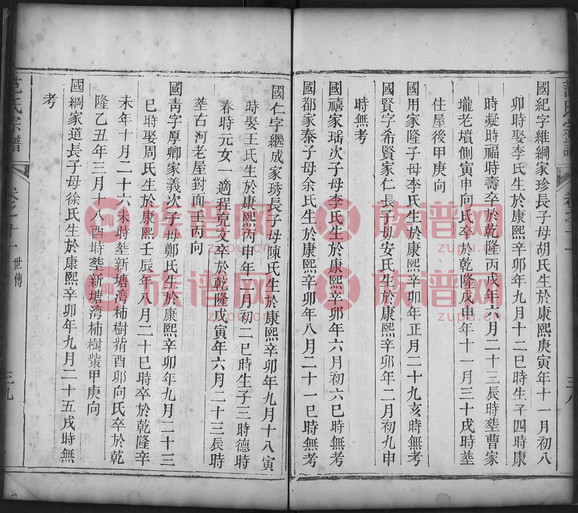 國紀字維綱家珍長子母胡氏生於康熙庚寅年十一月初八
卯時娶李氏生於康熙辛卯年九月十二巳時生子四時康
時凝時福時壽卒於乾隆丙戌年六月二十三辰時塟曹家
壠老墳側寅申向氏卒於乾隆戊申年十一月三十戌時塟
住屋後甲庚向
國用家隆子母李氏生於康熙辛卯年正月二十九亥時無考
國賢字希賢家仁長子母安氏生於康熙辛卯年二月初九申
時無考
國禧家瑤次子母李氏生於康熙辛卯年六月初六巳時無考
國郡家泰子母余氏生於康熙辛卯年八月二十一巳時無考
國仁字繼成家琇長子母陳氏生於康熙辛卯年九月十八寅
時娶王氏生於康熙丙申年三月初二巳時生子三時德時
春時元女一適程 文卒於乾隆戊寅年六月二十三辰時
塟古河老屋對面壬丙向
國靑字厚卿家義次子母鄭氏生於康熙辛卯年九月二十三
巳時娶周氏生於康熙壬辰年八月二十巳時卒於乾隆辛
未年十月二十六未時塟新塘湾柿樹𣬉酉卯向氏卒於乾
隆乙丑年三月 八酉時塟新塘湾柿樹𣬉甲庚向
國綱家道長子母徐氏生於康熙辛卯年九月二十五戌時無
考
范氏宗譜
卷之十一
世傳
三九
三八
族谱网
zupu.cn
族谱网
zupu.cn
族谱网
zupu.cn
族谱网
zupu.cn